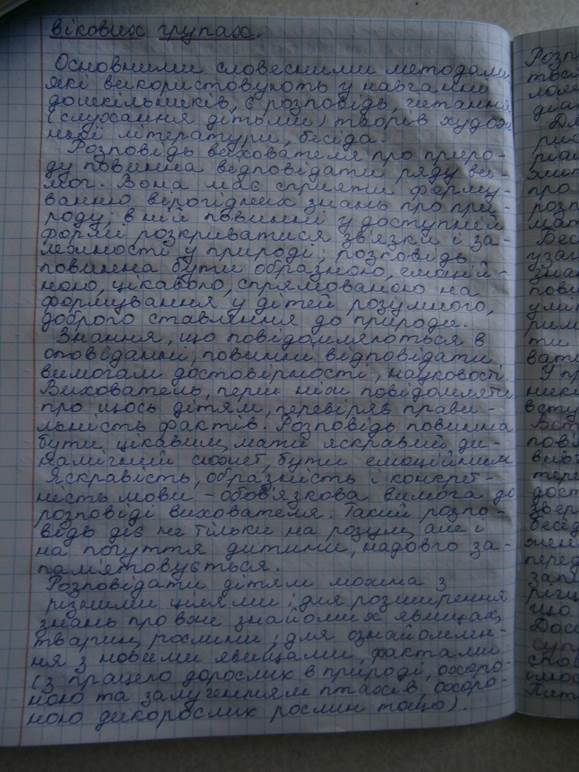 вікових групах.
Основними словесними методами,
які використовують у навчанні
дошкільників, є розповідь, читання
(слухання дітьми) творів худож
ньої літератури, бесіда.
Розповідь вихователя про приро-
ду повинна відповідати ряду ви-
мог. Вона має сприяти форму-
ванню вірогідних знань про при-
роду; в ній повинні у доступній
формі розкриватися зв'язки і за-
лежності у природі; розповідь
повинна бути образною, емоцій-
ною, цікавою, спрямованою на
формування у дітей розумного,
доброго ставлення до природи.
Знання, що повідомляються в
оповіданні, повинні відповідати
вимогам достовірності, науковості.
Вихователь, перш ніж повідомляти
про щось дітям, перевіряв прави-
льність фактів. Розповідь повинна
бути цікавим, мати яскравий ди-
намічний сюжет, бути емоційним.
Яскравість, образність і конкрет-
ність мови - обов'язкова вимога до
розповіді вихователя. Такий розпо-
відь діє не тільки на розум, але і
на почуття дитини, надовго за-
пам'ятовується.
Розповідати дітям можна з
різними цілями: для розширення
знань про вже знайомих явищах,
тварин, рослини; для ознайомлен-
ня з новими явищами, фактами
(з працею дорослих в природі, охоро-
ною та залученням птахів, охоро-
ною дикорослих рослин тощо).